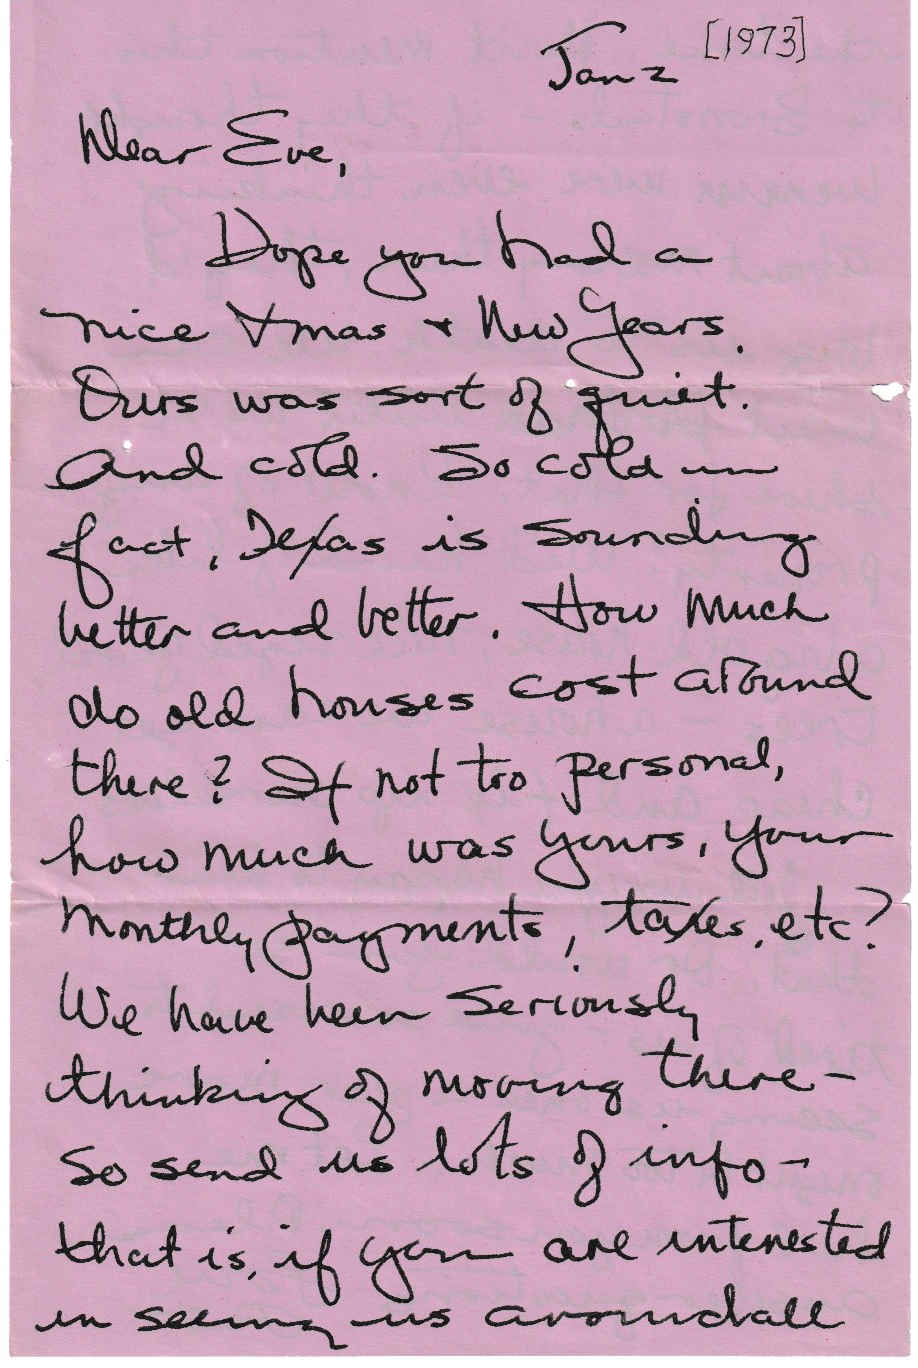 Jan 2 [1973]
Dear Eve,
Hope you had a
nice Xmas + New Years.
Ours was sort of quiet.
And cold. So cold in
fact, Texas is sounding
better and better. How much
do old houses cost around
there? If not too personal,
how much was yours, your
monthly payments, taxes, etc?
We have been seriously
thinking of moving there –
So send us lots of info –
that is, if you are interested
in seeing us around all